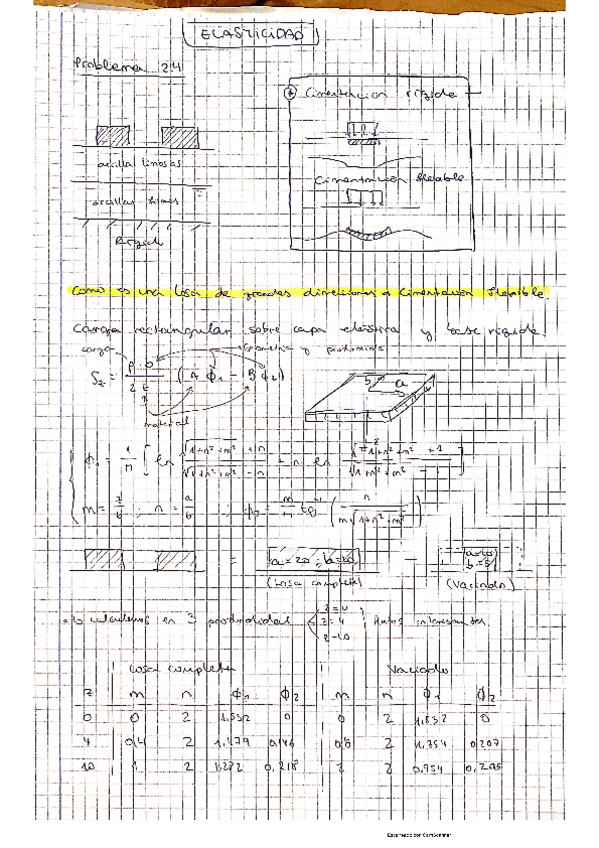 ELASTICIDAD
Problema 2.4
* Cimentación rígida
arcillas limosas
Cimentación flexible
arcillas firmes
Rígida
Como es una losa de grandes dimensiones → Cimentación flexible.
Carga rectangular sobre capa elástica y base rígida.
carga
geometría y profundidad
S_z = p·b / 2E (A ϕ1 - B ϕ2)
material
b a
z
ϕ1 = 1/π [ ln (√(1+n²+m²) + n) / (√(1+n²+m²) - n) + n ln (√(1+n²+m²) + 1) / (√(1+n²+m²) - 1) ]
m = z/b ; n = a/b ; ϕ2 = m/π tg⁻¹ ( n / (m√(1+n²+m²)) )
(Losa completa)
(Vaciado)
Lo calculamos en 3 profundidades z=0 z=4 z=10 Puntos interesantes.
Losa completa Vaciado
z m n ϕ1 ϕ2 m n ϕ1 ϕ2
0 0 2 1.532 0 0 2 1.532 0
4 0,4 2 1.479 0,146 0,8 2 1.354 0,207
10 1 2 1.272 0,218 2 2 0.954
Escaneado con CamScanner